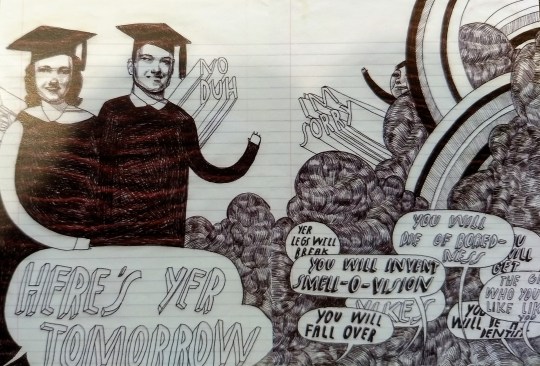 NO
DUH
I'M
SORRY
HERE'S YER
TOMORROW
YER
LEGS WILL
BREAK
YOU WILL INVENT
SMELL-O-VISION
YIKES
YOU WILL
FALL OVER
YOU WILL
DIE OF BORED-
NESS
GET
THE
WHO YOU
LIKE
YOU
WILL BE A